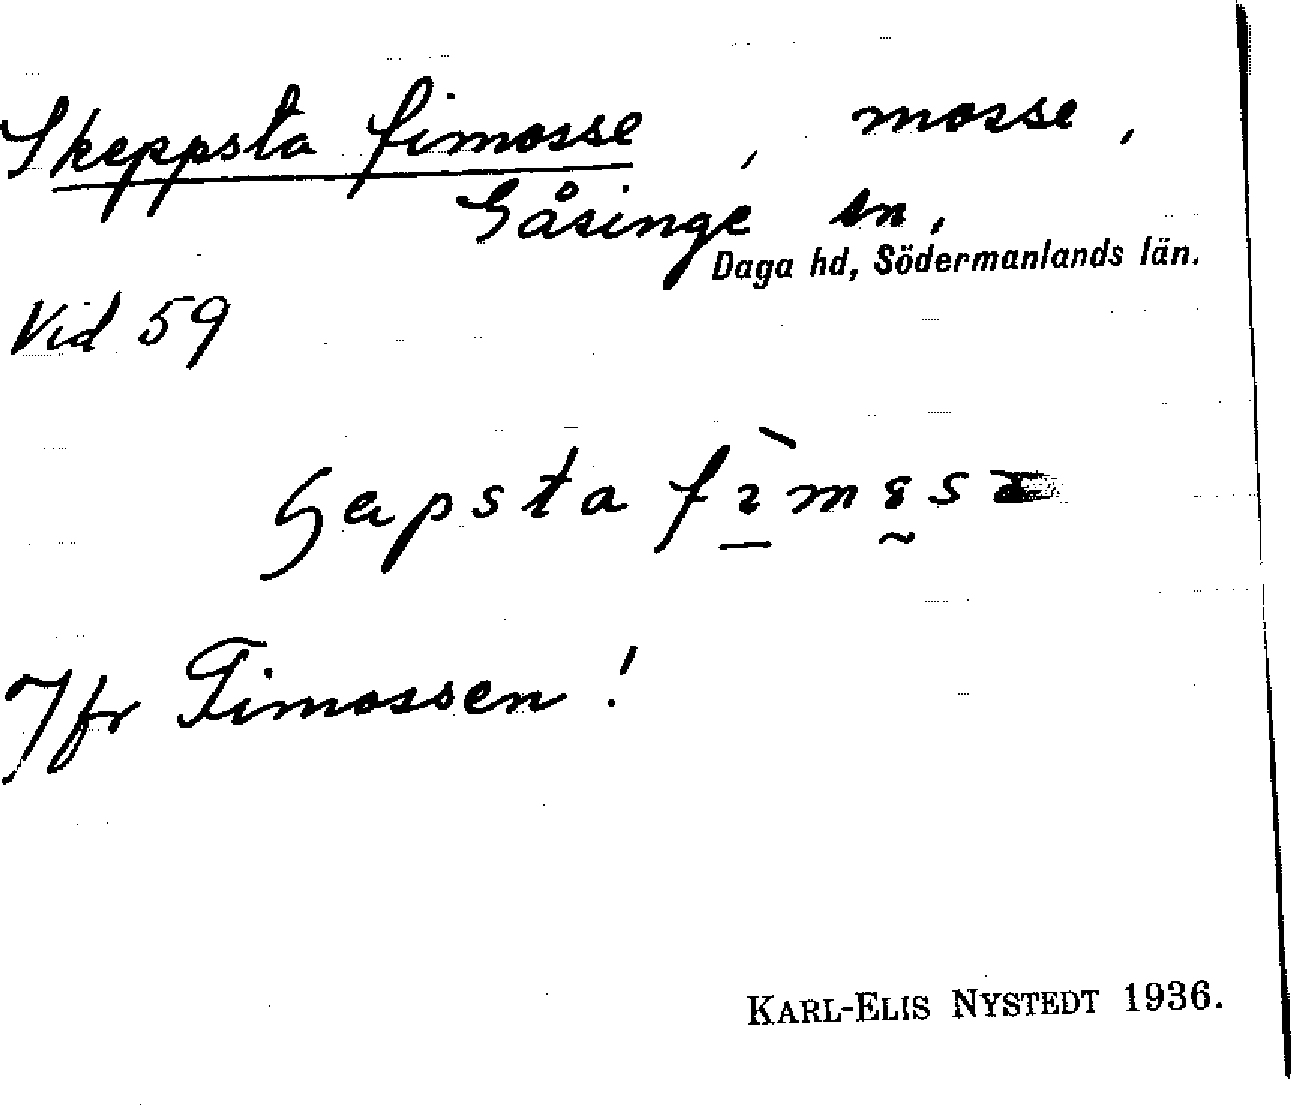 Skeppsta fimosse, mosse,
Gåsinge sn,
Daga hd, Södermanlands län.
Vid 59
Jfr Fimossen!
KARL-ELIS NYSTEDT 1936.